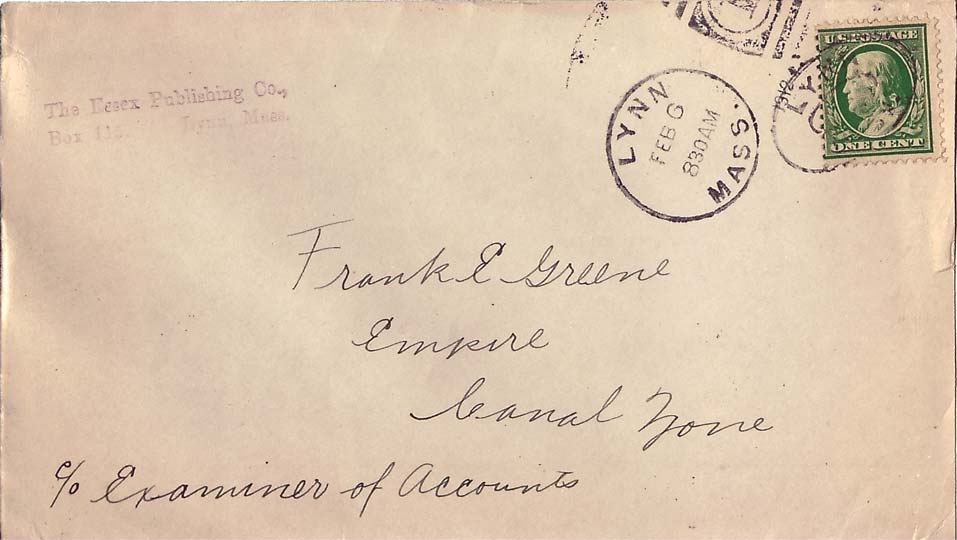 The Essex Publishing Co.,
Box 116. Lynn, Mass.
LYNN MASS.
FEB 6
830AM
1912
LYNN
U.S. POSTAGE
ONE CENT
Frank E Greene
Empire
Canal Zone
c/o Examiner of Accounts